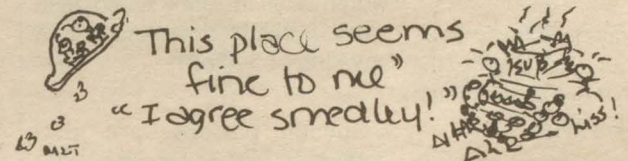 This place seems
fine to me"
"I agree smedley!"
hiss!